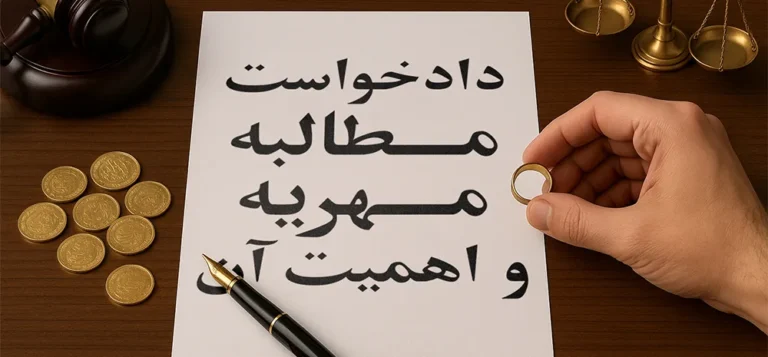 دادخواست
مطالبه
مهریه
و اهمیت آن